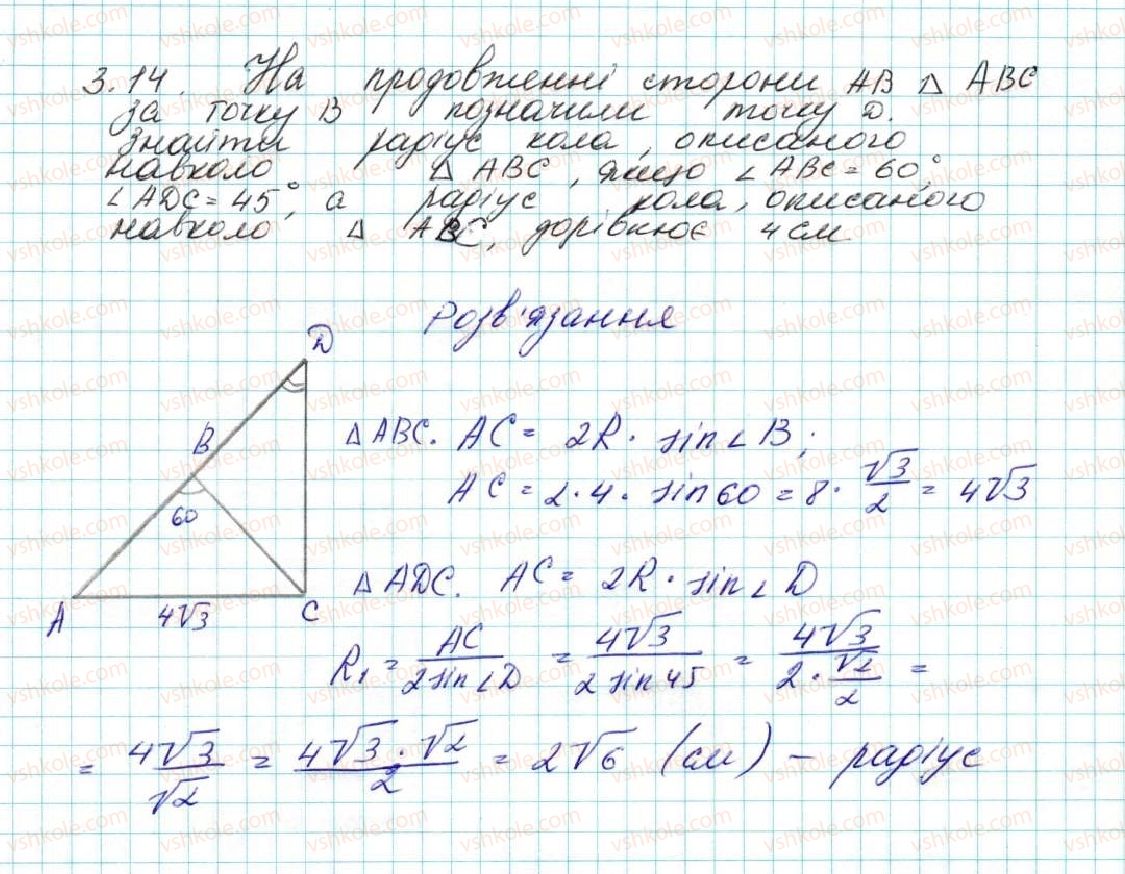 3.14. На продовженні сторони AB △ ABC
за точку B позначили точку D.
Знайти радіус кола, описаного
навколо △ ABC, якщо ∠ABC = 60°,
∠ADC = 45°, а радіус кола, описаного
навколо △ ABC, дорівнює 4 см
Розв'язання
D
B
60
A
4√3
C
△ABC. AC = 2R · sin∠B;
AC = 2·4· sin60 = 8 · √3/2 = 4√3
△ADC. AC = 2R · sin∠D
R₁ = AC/(2sin∠D) = 4√3/(2 sin45) = 4√3/(2·√2/2) =
= 4√3/√2 = (4√3·√2)/2 = 2√6 (см) – радіус